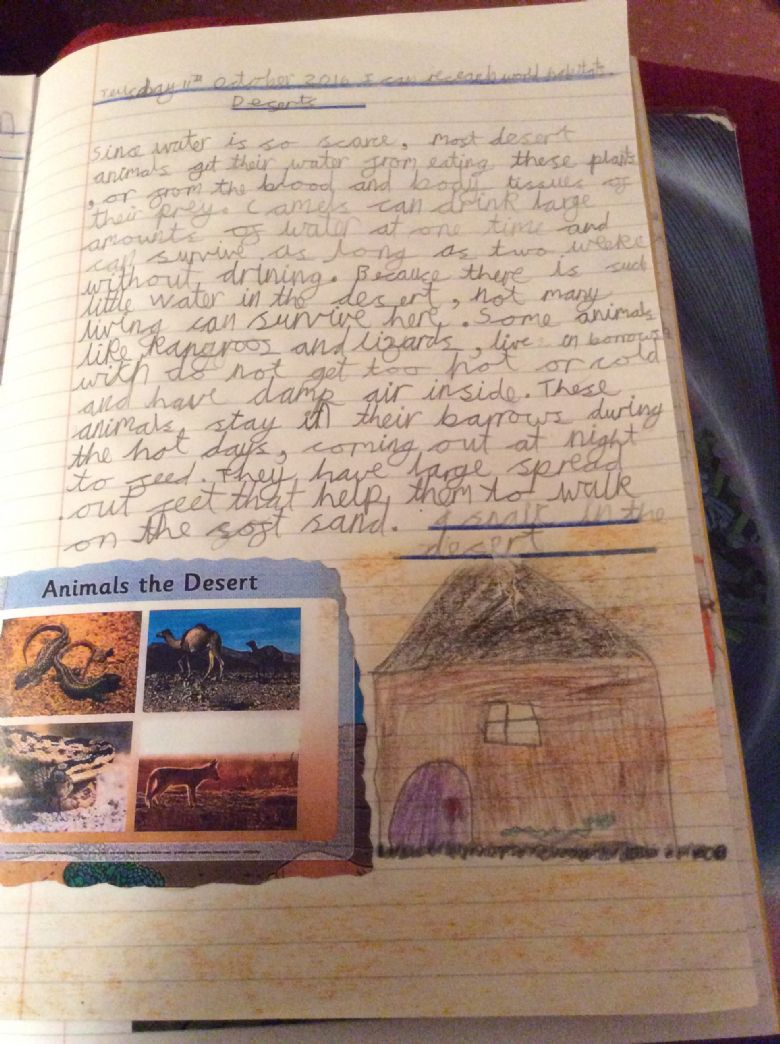 Teusday 11th October 2016 I can reserch world habitats.
Deserts
Since water is so scarce, most desert
animals get their water from eating these plants
, or from the blood and body tissues of
their prey. Camels can drink large
amounts of water at one time and
can survive as long as two weeks
without drining. Because there is such
little water in the desert, not many
living can survive here. Some animals
like kangroos and lizards, live in borrows
with do not get too hot or cold
and have damp air inside. These
animals, stay in their barrows during
the hot days, coming out at night
to feed. They have large spread
out feet that help them to walk
on the soft sand.
in the
desert
Animals the Desert